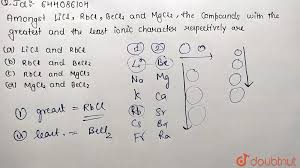 Q.Id:- 644086104
Amongst LiCl, RbCl, BeCl2 and MgCl2, the compounds with the
greatest and the least ionic character respectively are
(a) LiCl and RbCl
(b) RbCl and BeCl2
(c) RbCl and MgCl2
(d) MgCl2 and BeCl2
① ②
Li Be
Na Mg
K Ca
Rb Sr
Cs Ba
Fr Ra
(i) great = RbCl
(ii) least = BeCl2
doubtnut